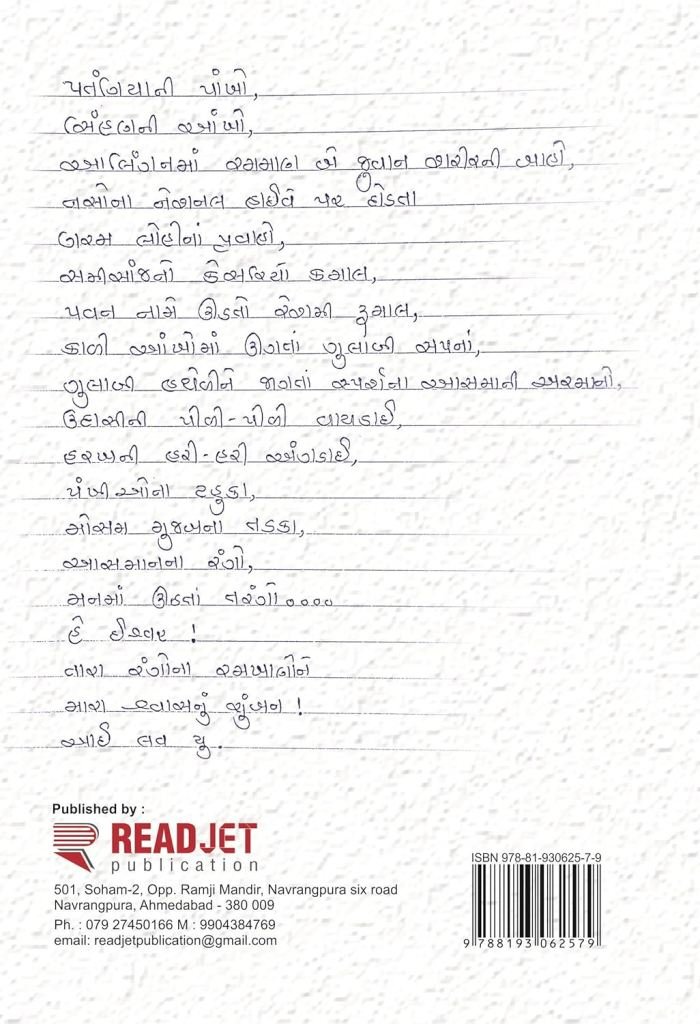 પતંગિયાની પાંખો,
સિંહણની આંખો,
આલિંગનમાં રમમાણ બે જુવાન શરીરની બાહો,
નસોના નેશનલ હાઈવે પર દોડતા
ગરમ લોહીનાં પ્રવાહો,
સમીસાંજનો કેસરિયો કમાલ,
પવન નામે ઊડતો રેશમી રૂમાલ,
કાળી આંખોમાં ઊગતાં ગુલાબી સપનાં,
ગુલાબી હથેળીને જાગતાં સ્પર્શના આસમાની અરમાનો,
ઉદાસીની પીળી-પીળી વાયડાઈ,
હરખની હરી-હરી અંગડાઈ,
પંખીઓના ટહુકા,
મોસમ મુજબના તડકા,
આસમાનના રંગો,
મનમાં ઊઠતાં તરંગો....
હે ઈશ્વર !
તારા રંગોના રમખાણોને
મારા શ્વાસનું ચુંબન !
આઈ લવ યુ.
Published by :
READJET
publication
501, Soham-2, Opp. Ramji Mandir, Navrangpura six road
Navrangpura, Ahmedabad - 380 009
Ph. : 079 27450166 M : 9904384769
email: readjetpublication@gmail.com
ISBN 978-81-930625-7-9
9 788193 062579